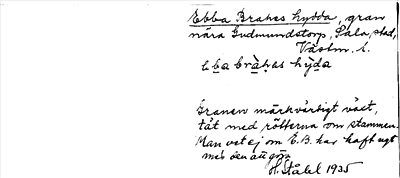 Ebba Brahes hydda, gran
nära Gudmundstorp, Sala, stad,
Västm. l.
ẹb̲a brà̲has hy̆d̲a
Granen märkvärdigt växt,
tät med rötterna om stammen.
Man vet ej om E.B. har haft ngt
med den att göra
H. Ståhl 1935